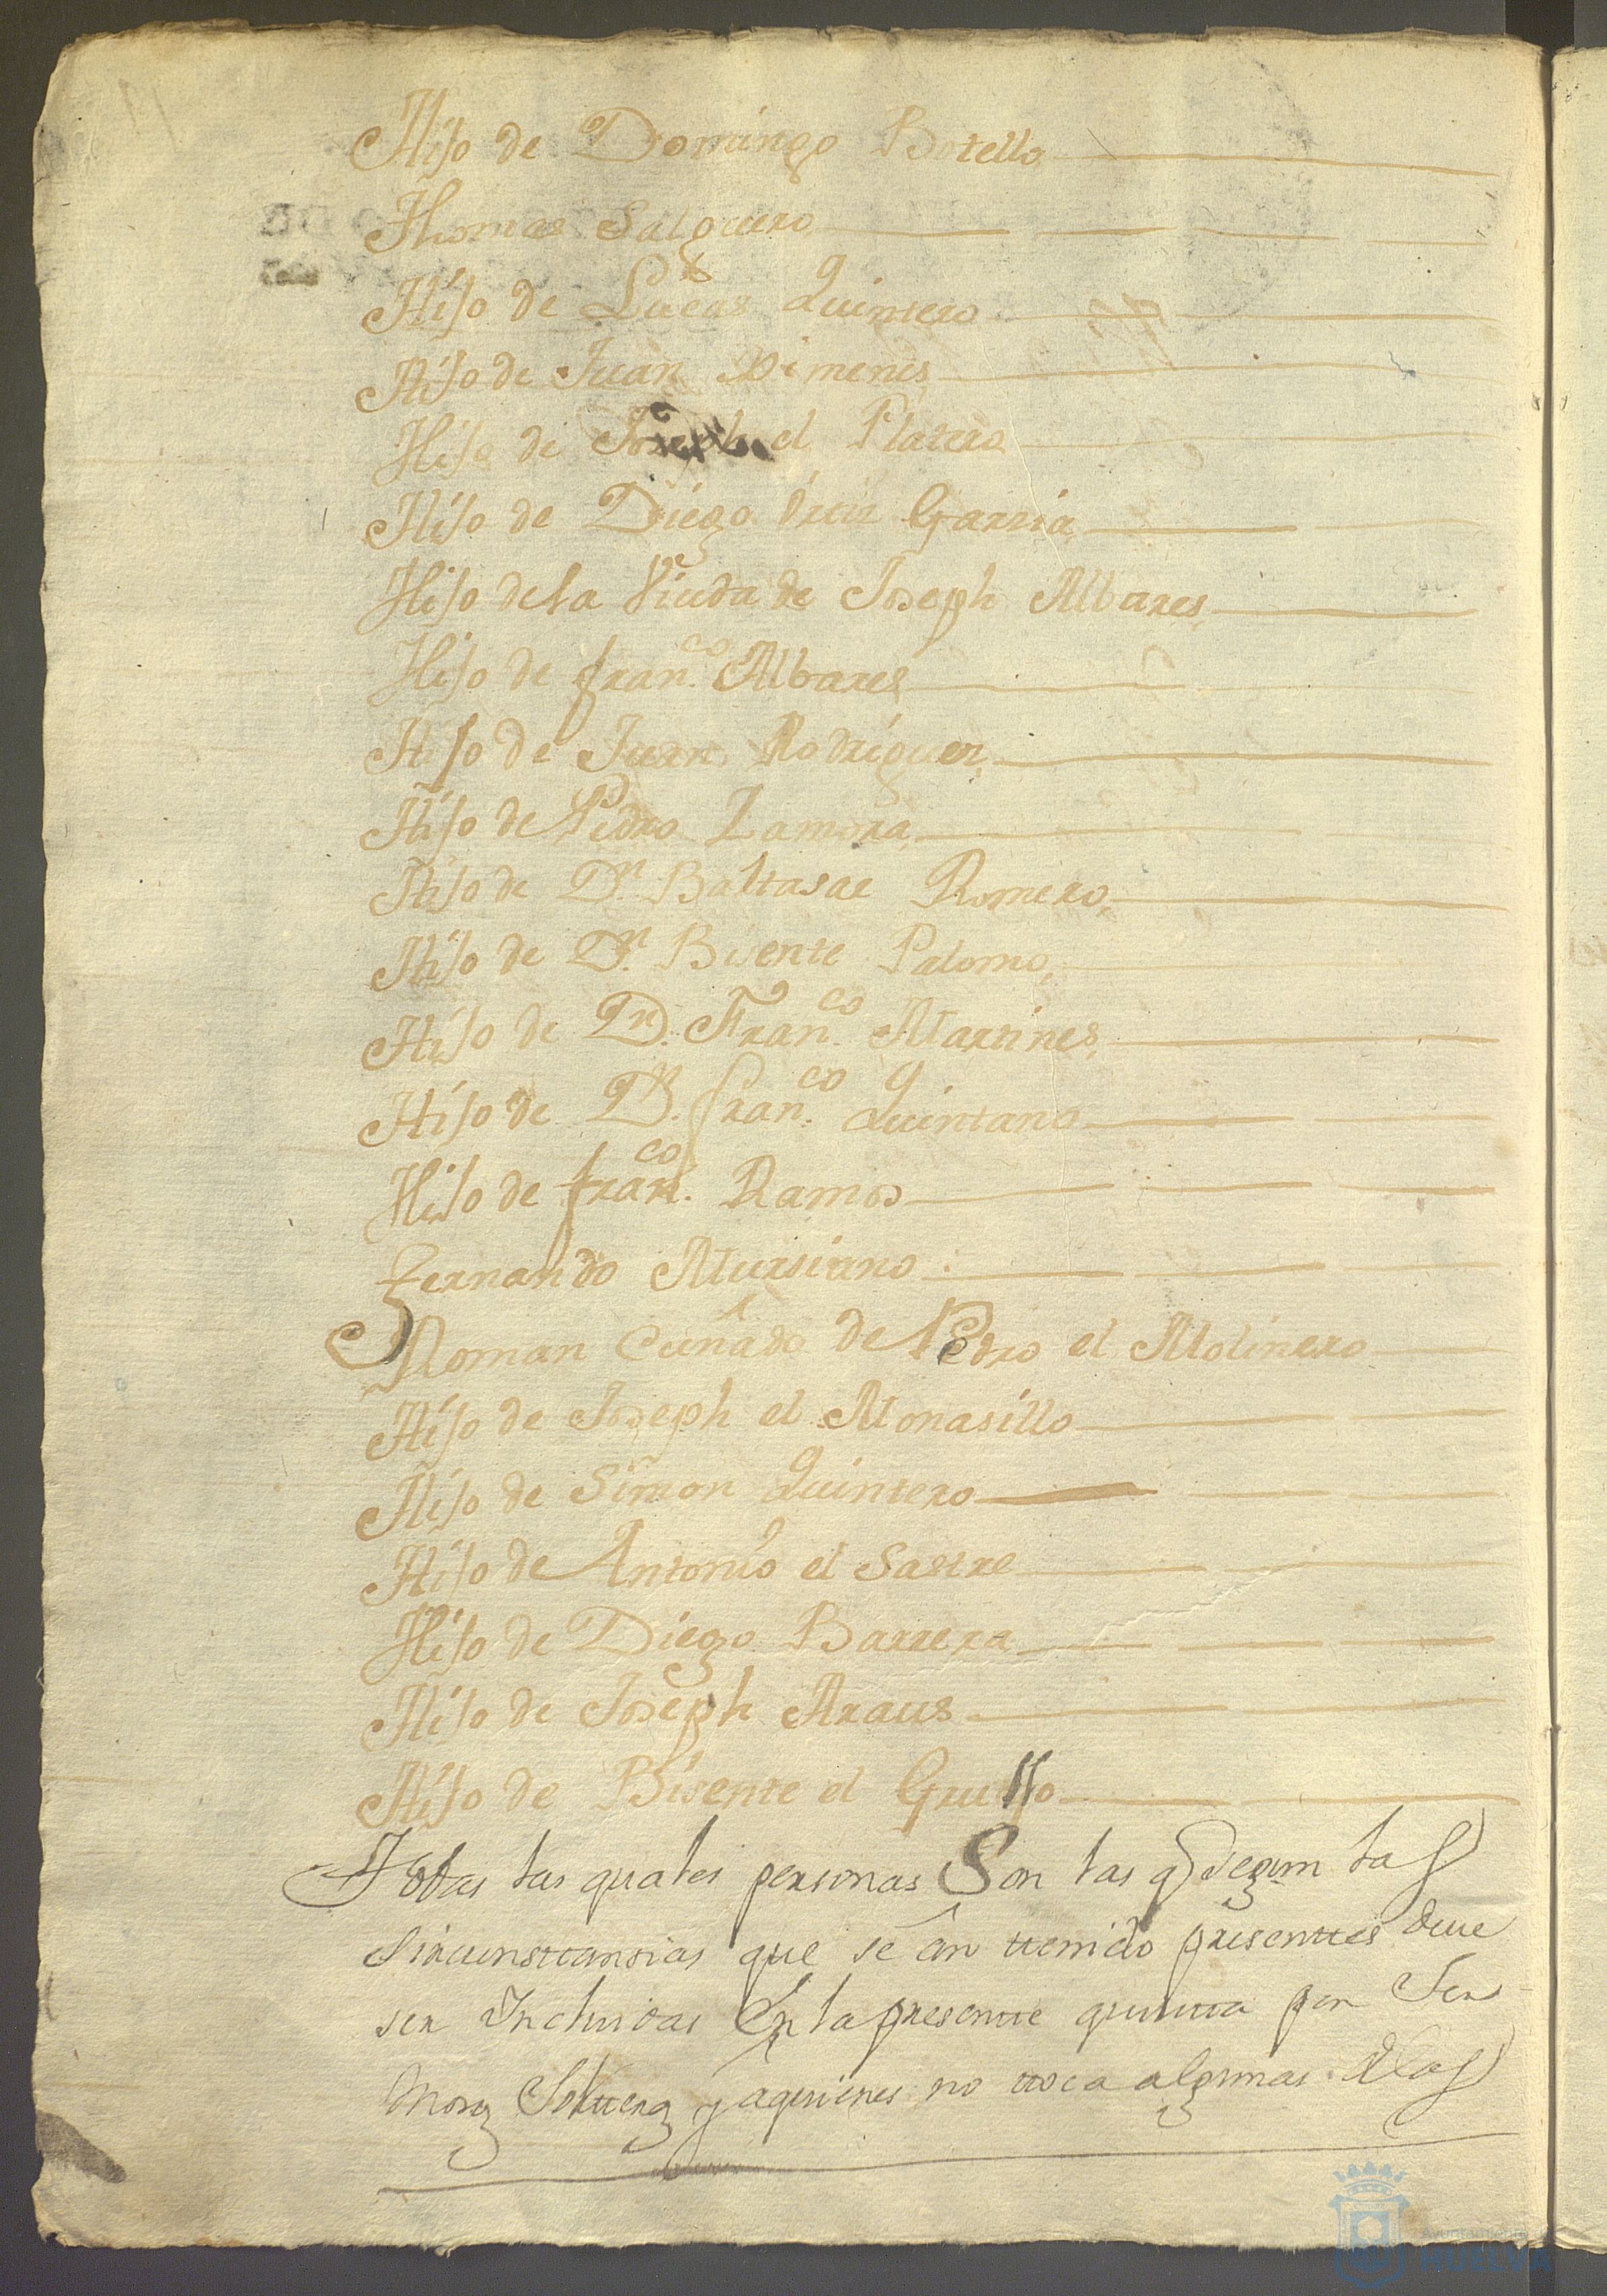 Hijo de Domingo Botello
Thomas Salguero
Hijo de Lucas Quintero
Hijo de Juan Ximenes
Hijo de Joseph el Platero
Hijo de Diego Garsia
Hijo de la Viuda de Joseph Albares
Hijo de Fran.co Albares
Hijo de Juan Rodriguez
Hijo de Pedro Zamora
Hijo de Dn. Baltasar Romero
Hijo de Dn. Bisente Palomo
Hijo de Dn. Fran.co Martines
Hijo de Dn. Fran.co Quintano
Hijo de Fran.co Ramos
Fernando Mursiano
Roman Cuñado de Pedro el Molinero
Hijo de Joseph el Monasillo
Hijo de Simon Quintero
Hijo de Antonio el Sastre
Hijo de Diego Barrera
Hijo de Joseph Araus
Hijo de Bisente el Grullo
Todas las quales personas Son las q segun las
Sircunsttansias que se an ttenido presenttes deve
ser Incluidas En la presentte quintta por Ser
Mozos Soltteros y aquienes no ttoca algunas de las
Ayuntamiento
HUELVA